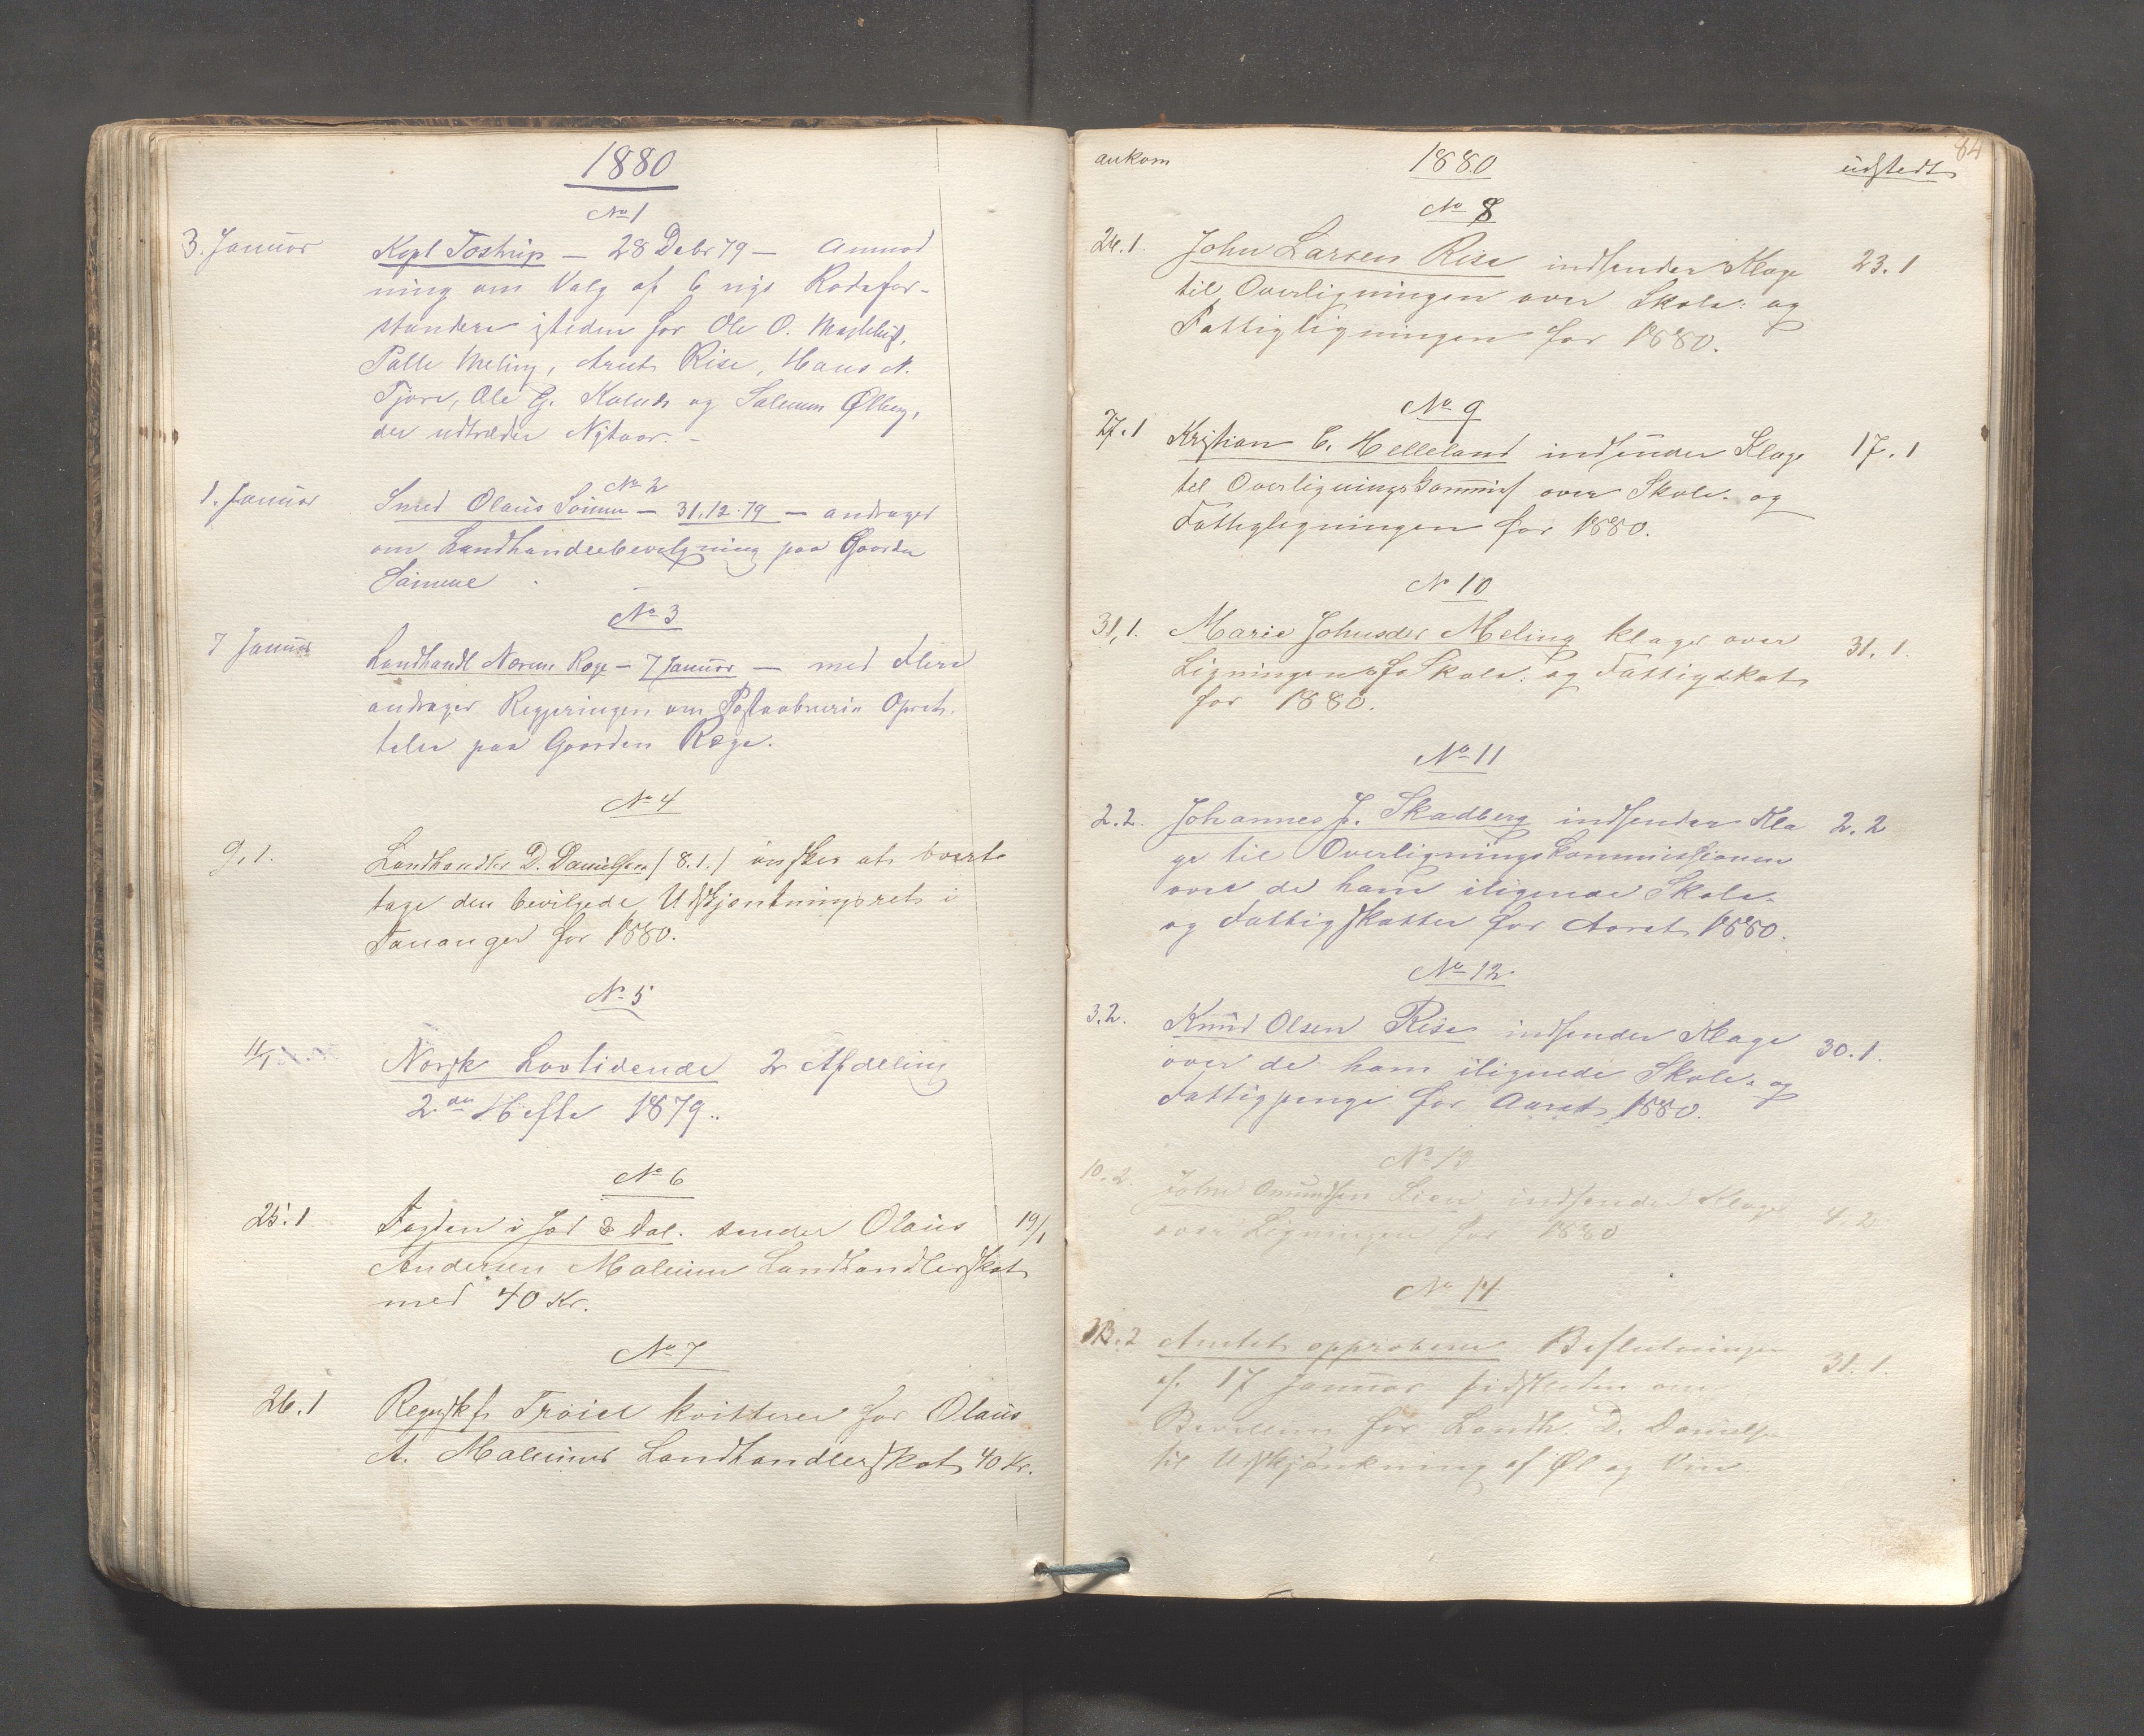 1880
No 1
3. Januar Kapt Tostrup — 28 Debr 79 — Anmod
ning om Valg af 6 nye Rodefor-
standere isteden for Ole O.
Palle Meling, Rise, Hans N.
Tjore, Ole G. og Salemon Ølberg,
der udtræder Nytaar. –
No 2
1. Januar Smed Olaus Sömme — 31.12.79 — andrager
om Landhandelbevilgning paa Gaarden
Sömme
No 3
7 Januar Landhandl Roge — 7 Januar — med flere
andrager Regjeringen om Postaabneri Opret-
telse paa Gaarden Roge.
No 4
9.1. Landhandler D. Danielsen (8.1.) önsker at
tage den bevilgede Udskjænkningsret i
Tananger for 1880.
No 5
11/1 Norsk Lovtidende 2 Afdeling
2den Hefte 1879.
No 6
25.1 Fogden i Jæd & Dal. sender Olaus 19/1
Andersen Maleum Landhandlerskat
med 40 Kr.
No 7
26.1 Regnskf. kvitterer for Olaus
A. Landhandlerskat 40 Kr.
84
ankom 1880 udstedt
No 8
24.1. John Larsen Rise indsender Klage 23.1
til Overligningen over Skole- og
Fattigligningen for 1880.
No 9
27.1 Kristian C. Helleland indsender Klage 17.1
til Overligningskommis over Skole- og
Fattigligningen for 1880.
N 10
31.1. Marie Johnsdtr Meling klager over 31.1.
Ligningen af Skole- og Fattigskat
for 1880.
No 11
2.2. Johannes J. Skadberg indsender Kla 2.2
ge til Overligningskommissionen
over de ham ilignede Skole-
og Fattigskatter for Aaret 1880.
No 12
3.2. Knud Olsen Rise indsender Klage 30.1.
over de ham ilignede Skole- og
Fattigpenge for Aaret 1880.
No 13
10.2. John Omundsen Lien indsender Klage 4.2
over Ligningen for 1880
No 14
13.2 Amtet approberer Beslutningen 31.1.
af 17 Januar sidstleden om
for Landh. D. Danielsen
til Udskjænkning af Øl og Vin.